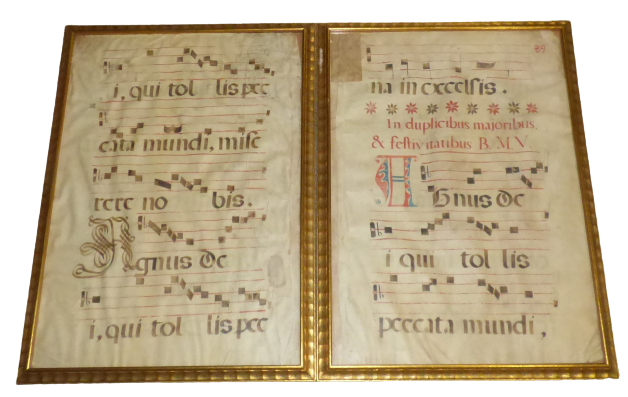 i, qui tol lis pec
cata mundi, mise
rere no bis.
Agnus de
i, qui tol lis pec
89
na in excelsis.
In duplicibus majoribus,
& festivitatibus B. M. V.
Agnus de
i qui tol lis
peccata mundi,